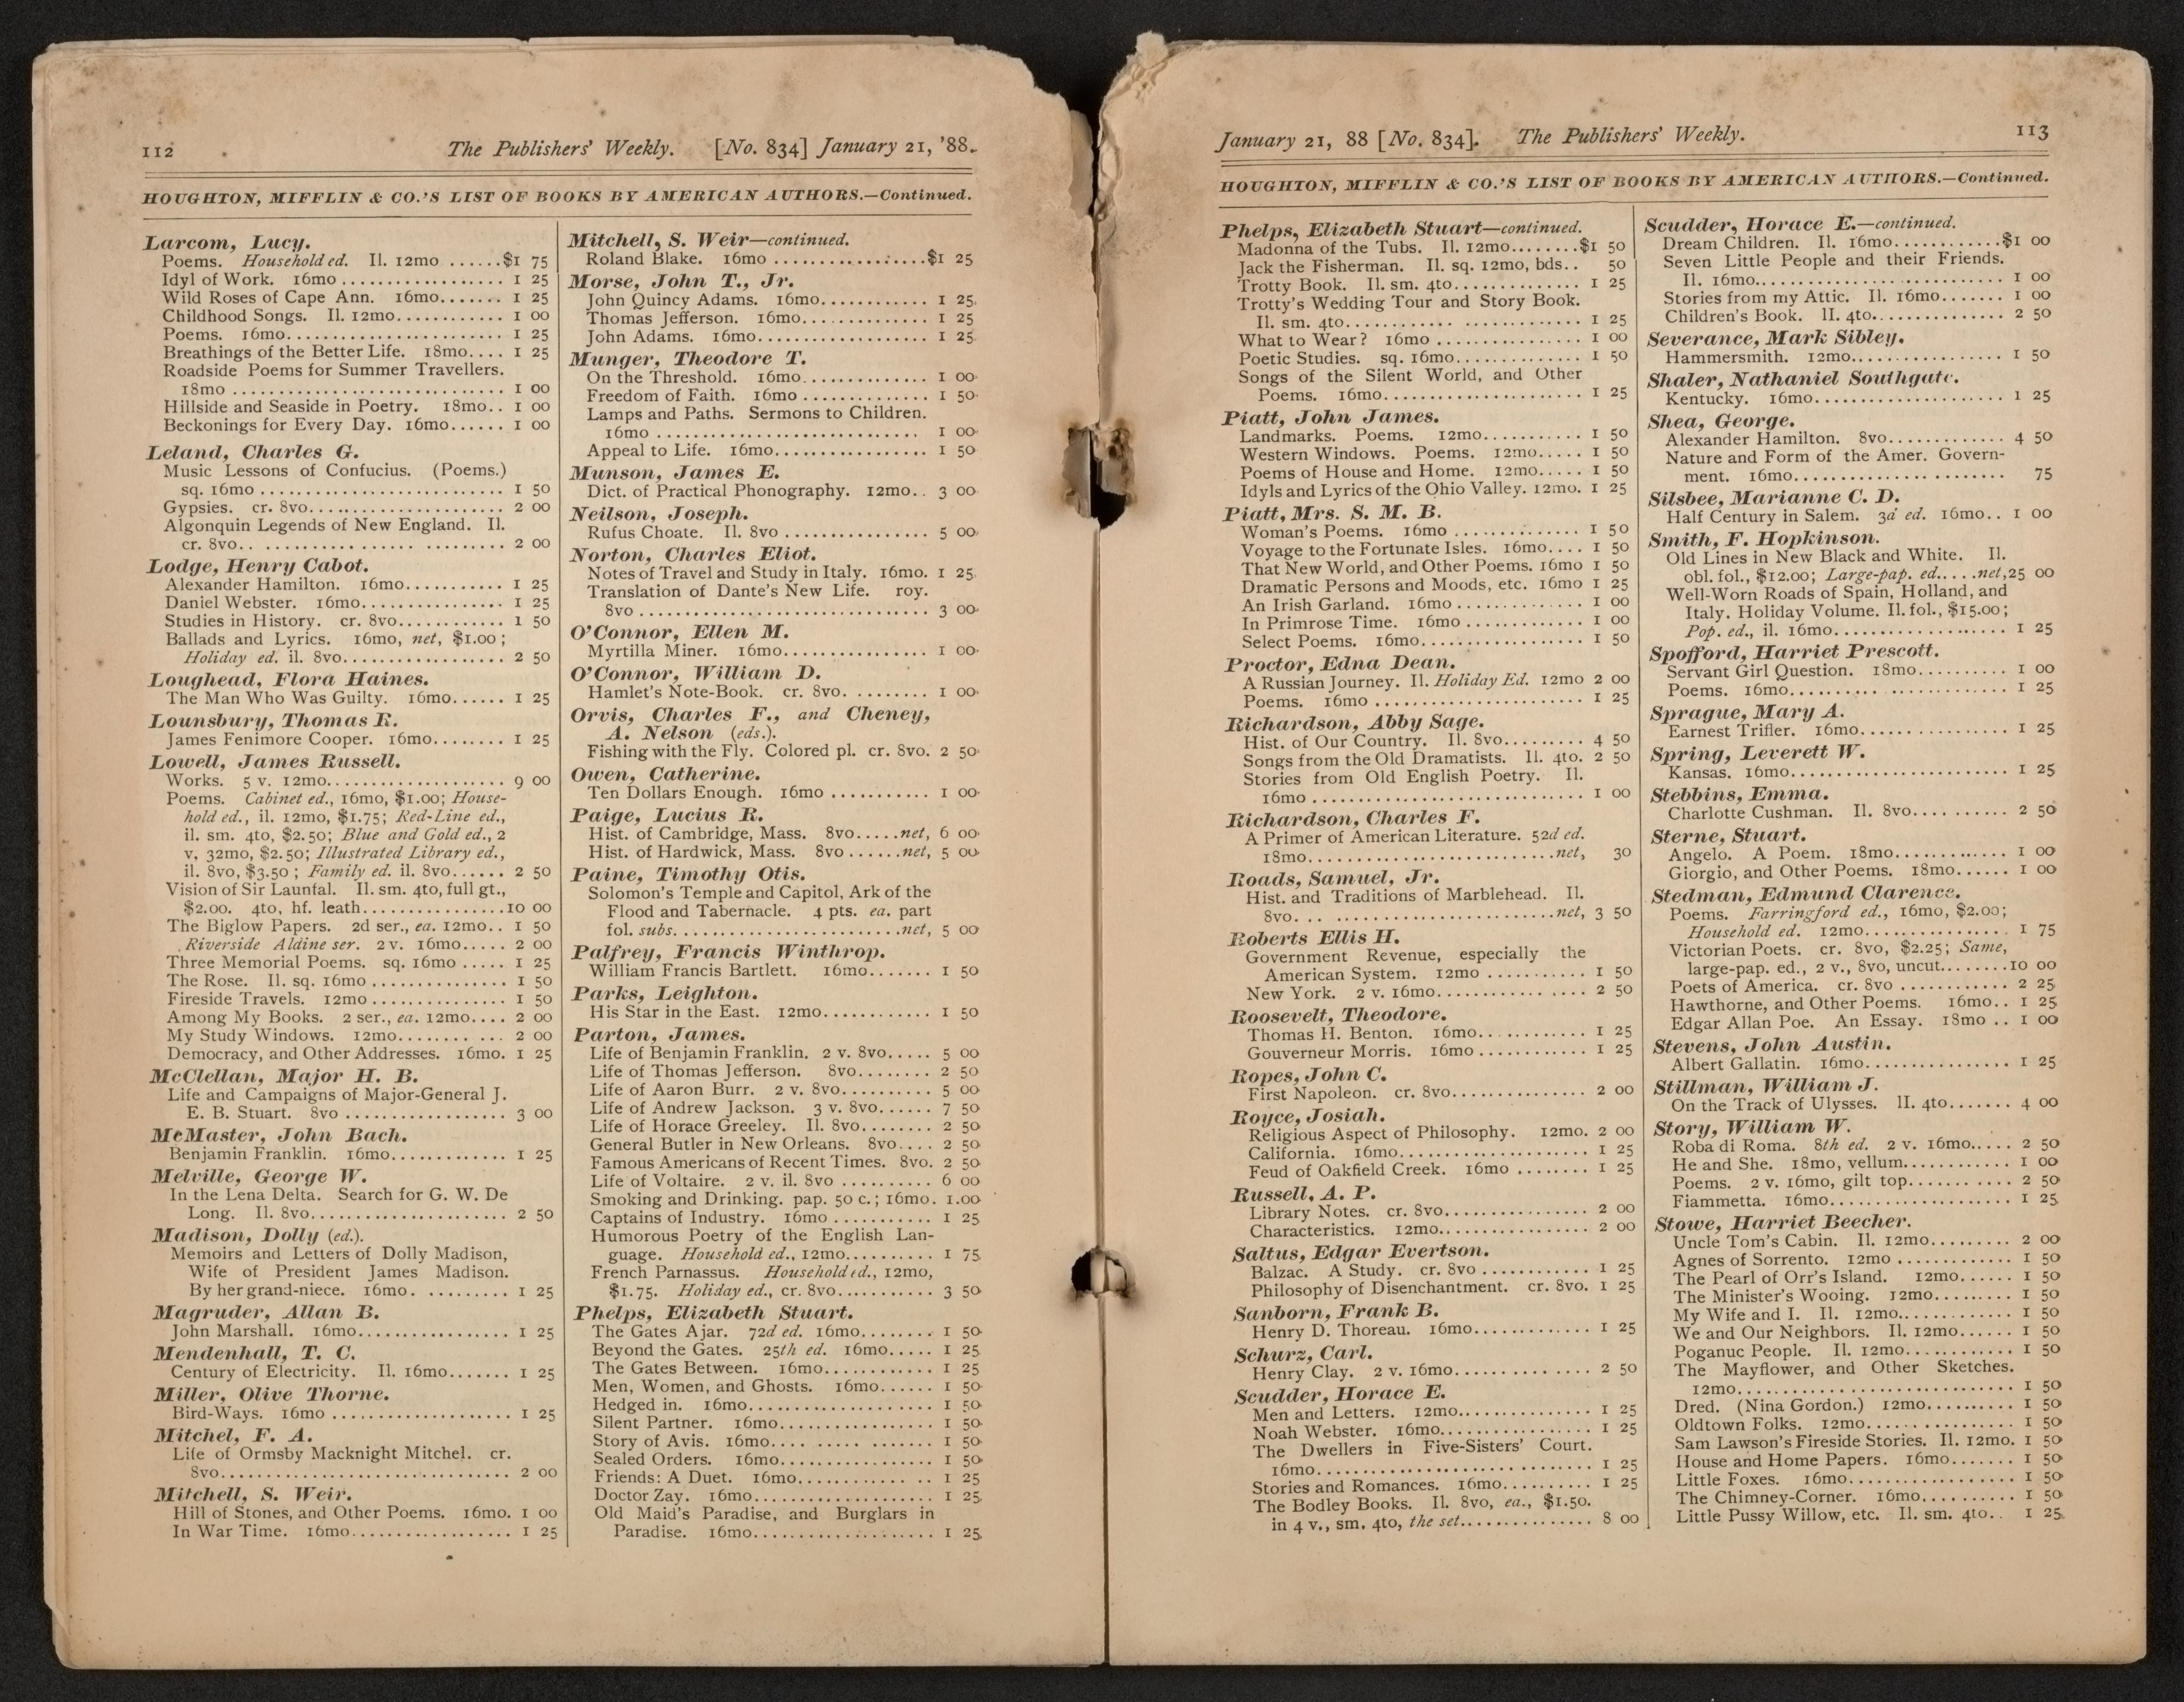 112 The Publishers' Weekly. [No. 834] January 21, '88.
HOUGHTON, MIFFLIN & CO.'S LIST OF BOOKS BY AMERICAN AUTHORS.—Continued.
Larcom, Lucy.
Poems. Household ed. Il. 12mo ......$1 75
Idyl of Work. 16mo .................. 1 25
Wild Roses of Cape Ann. 16mo....... 1 25
Childhood Songs. Il. 12mo............ 1 00
Poems. 16mo........................ 1 25
Breathings of the Better Life. 18mo.... 1 25
Roadside Poems for Summer Travellers.
18mo .............................. 1 00
Hillside and Seaside in Poetry. 18mo.. 1 00
Beckonings for Every Day. 16mo...... 1 00
Leland, Charles G.
Music Lessons of Confucius. (Poems.)
sq. 16mo ........................... 1 50
Gypsies. cr. 8vo...................... 2 00
Algonquin Legends of New England. Il.
cr. 8vo.. ................. ......... 2 00
Lodge, Henry Cabot.
Alexander Hamilton. 16mo........... 1 25
Daniel Webster. 16mo................ 1 25
Studies in History. cr. 8vo............ 1 50
Ballads and Lyrics. 16mo, net, $1.00;
Holiday ed. il. 8vo.................. 2 50
Loughead, Flora Haines.
The Man Who Was Guilty. 16mo...... 1 25
Lounsbury, Thomas R.
James Fenimore Cooper. 16mo........ 1 25
Lowell, James Russell.
Works. 5 v. 12mo.................... 9 00
Poems. Cabinet ed., 16mo, $1.00; House-
hold ed., il. 12mo, $1.75; Red-Line ed.,
il. sm. 4to, $2.50; Blue and Gold ed., 2
v. 32mo, $2.50; Illustrated Library ed.,
il. 8vo, $3.50; Family ed. il. 8vo...... 2 50
Vision of Sir Launfal. Il. sm. 4to, full gt.,
$2.00. 4to, hf. leath................10 00
The Biglow Papers. 2d ser., ea. 12mo.. 1 50
Riverside Aldine ser. 2 v. 16mo..... 2 00
Three Memorial Poems. sq. 16mo ..... 1 25
The Rose. Il. sq. 16mo ............... 1 50
Fireside Travels. 12mo ............... 1 50
Among My Books. 2 ser., ea. 12mo.... 2 00
My Study Windows. 12mo........ ... 2 00
Democracy, and Other Addresses. 16mo. 1 25
McClellan, Major H. B.
Life and Campaigns of Major-General J.
E. B. Stuart. 8vo .................. 3 00
McMaster, John Bach.
Benjamin Franklin. 16mo............. 1 25
Melville, George W.
In the Lena Delta. Search for G. W. De
Long. Il. 8vo...................... 2 50
Madison, Dolly (ed.).
Memoirs and Letters of Dolly Madison,
Wife of President James Madison.
By her grand-niece. 16mo. ......... 1 25
Magruder, Allan B.
John Marshall. 16mo................. 1 25
Mendenhall, T. C.
Century of Electricity. Il. 16mo....... 1 25
Miller, Olive Thorne.
Bird-Ways. 16mo .................... 1 25
Mitchel, F. A.
Life of Ormsby Macknight Mitchel. cr.
8vo................................ 2 00
Mitchell, S. Weir.
Hill of Stones, and Other Poems. 16mo. 1 00
In War Time. 16mo.................. 1 25
Mitchell, S. Weir—continued.
Roland Blake. 16mo .................$1 25
Morse, John T., Jr.
John Quincy Adams. 16mo............ 1 25
Thomas Jefferson. 16mo.............. 1 25
John Adams. 16mo................... 1 25
Munger, Theodore T.
On the Threshold. 16mo.............. 1 00
Freedom of Faith. 16mo .............. 1 50
Lamps and Paths. Sermons to Children.
16mo ............................. 1 00
Appeal to Life. 16mo................. 1 50
Munson, James E.
Dict. of Practical Phonography. 12mo.. 3 00
Neilson, Joseph.
Rufus Choate. Il. 8vo ................ 5 00
Norton, Charles Eliot.
Notes of Travel and Study in Italy. 16mo. 1 25
Translation of Dante's New Life. roy.
8vo ............................... 3 00
O'Connor, Ellen M.
Myrtilla Miner. 16mo................. 1 00
O'Connor, William D.
Hamlet's Note-Book. cr. 8vo. ......... 1 00
Orvis, Charles F., and Cheney,
A. Nelson (eds.).
Fishing with the Fly. Colored pl. cr. 8vo. 2 50
Owen, Catherine.
Ten Dollars Enough. 16mo ........... 1 00
Paige, Lucius R.
Hist. of Cambridge, Mass. 8vo.....net, 6 00
Hist. of Hardwick, Mass. 8vo ......net, 5 00
Paine, Timothy Otis.
Solomon's Temple and Capitol, Ark of the
Flood and Tabernacle. 4 pts. ea. part
fol. subs.........................net, 5 00
Palfrey, Francis Winthrop.
William Francis Bartlett. 16mo....... 1 50
Parks, Leighton.
His Star in the East. 12mo............ 1 50
Parton, James.
Life of Benjamin Franklin. 2 v. 8vo..... 5 00
Life of Thomas Jefferson. 8vo........ 2 50
Life of Aaron Burr. 2 v. 8vo.......... 5 00
Life of Andrew Jackson. 3 v. 8vo...... 7 50
Life of Horace Greeley. Il. 8vo........ 2 50
General Butler in New Orleans. 8vo.... 2 50
Famous Americans of Recent Times. 8vo. 2 50
Life of Voltaire. 2 v. il. 8vo .......... 6 00
Smoking and Drinking. pap. 50 c.; 16mo. 1.00
Captains of Industry. 16mo ........... 1 25
Humorous Poetry of the English Lan-
guage. Household ed., 12mo.......... 1 75
French Parnassus. Household ed., 12mo,
$1.75. Holiday ed., cr. 8vo........... 3 50
Phelps, Elizabeth Stuart.
The Gates Ajar. 72d ed. 16mo........ 1 50
Beyond the Gates. 25th ed. 16mo..... 1 25
The Gates Between. 16mo............ 1 25
Men, Women, and Ghosts. 16mo...... 1 50
Hedged in. 16mo.................... 1 50
Silent Partner. 16mo................. 1 50
Story of Avis. 16mo.... ..... ....... 1 50
Sealed Orders. 16mo................. 1 50
Friends: A Duet. 16mo............ .. 1 25
Doctor Zay. 16mo................... 1 25
Old Maid's Paradise, and Burglars in
Paradise. 16mo.................... 1 25
January 21, 88 [No. 834]. The Publishers' Weekly. 113
HOUGHTON, MIFFLIN & CO.'S LIST OF BOOKS BY AMERICAN AUTHORS.—Continued.
Phelps, Elizabeth Stuart—continued.
Madonna of the Tubs. Il. 12mo........$1 50
Jack the Fisherman. Il. sq. 12mo, bds.. 50
Trotty Book. Il. sm. 4to.............. 1 25
Trotty's Wedding Tour and Story Book.
Il. sm. 4to.......... ............. 1 25
What to Wear? 16mo ................ 1 00
Poetic Studies. sq. 16mo............. 1 50
Songs of the Silent World, and Other
Poems. 16mo....................... 1 25
Piatt, John James.
Landmarks. Poems. 12mo........... 1 50
Western Windows. Poems. 12mo..... 1 50
Poems of House and Home. 12mo..... 1 50
Idyls and Lyrics of the Ohio Valley. 12mo. 1 25
Piatt, Mrs. S. M. B.
Woman's Poems. 16mo .............. 1 50
Voyage to the Fortunate Isles. 16mo.... 1 50
That New World, and Other Poems. 16mo 1 50
Dramatic Persons and Moods, etc. 16mo 1 25
An Irish Garland. 16mo .............. 1 00
In Primrose Time. 16mo .............. 1 00
Select Poems. 16mo.................. 1 50
Proctor, Edna Dean.
A Russian Journey. Il. Holiday Ed. 12mo 2 00
Poems. 16mo ....................... 1 25
Richardson, Abby Sage.
Hist. of Our Country. Il. 8vo......... 4 50
Songs from the Old Dramatists. Il. 4to. 2 50
Stories from Old English Poetry. Il.
16mo .............................. 1 00
Richardson, Charles F.
A Primer of American Literature. 52d ed.
18mo............................net, 30
Roads, Samuel, Jr.
Hist. and Traditions of Marblehead. Il.
8vo... .........................net, 3 50
Roberts Ellis H.
Government Revenue, especially the
American System. 12mo ........... 1 50
New York. 2 v. 16mo................ 2 50
Roosevelt, Theodore.
Thomas H. Benton. 16mo............ 1 25
Gouverneur Morris. 16mo ............ 1 25
Ropes, John C.
First Napoleon. cr. 8vo............... 2 00
Royce, Josiah.
Religious Aspect of Philosophy. 12mo. 2 00
California. 16mo..................... 1 25
Feud of Oakfield Creek. 16mo ........ 1 25
Russell, A. P.
Library Notes. cr. 8vo................ 2 00
Characteristics. 12mo................. 2 00
Saltus, Edgar Evertson.
Balzac. A Study. cr. 8vo ............ 1 25
Philosophy of Disenchantment. cr. 8vo. 1 25
Sanborn, Frank B.
Henry D. Thoreau. 16mo............. 1 25
Schurz, Carl.
Henry Clay. 2 v. 16mo............... 2 50
Scudder, Horace E.
Men and Letters. 12mo............... 1 25
Noah Webster. 16mo................. 1 25
The Dwellers in Five-Sisters' Court.
16mo.............................. 1 25
Stories and Romances. 16mo.......... 1 25
The Bodley Books. Il. 8vo, ea., $1.50.
in 4 v., sm. 4to, the set............... 8 00
Scudder, Horace E.—continued.
Dream Children. Il. 16mo............$1 00
Seven Little People and their Friends.
Il. 16mo........................... 1 00
Stories from my Attic. Il. 16mo....... 1 00
Children's Book. Il. 4to.............. 2 50
Severance, Mark Sibley.
Hammersmith. 12mo................. 1 50
Shaler, Nathaniel Southgate.
Kentucky. 16mo..................... 1 25
Shea, George.
Alexander Hamilton. 8vo............. 4 50
Nature and Form of the Amer. Govern-
ment. 16mo....................... 75
Silsbee, Marianne C. D.
Half Century in Salem. 3d ed. 16mo.. 1 00
Smith, F. Hopkinson.
Old Lines in New Black and White. Il.
obl. fol., $12.00; Large-pap. ed.....net,25 00
Well-Worn Roads of Spain, Holland, and
Italy. Holiday Volume. Il. fol., $15.00;
Pop. ed., il. 16mo................... 1 25
Spofford, Harriet Prescott.
Servant Girl Question. 18mo.......... 1 00
Poems. 16mo........................ 1 25
Sprague, Mary A.
Earnest Trifler. 16mo................ 1 25
Spring, Leverett W.
Kansas. 16mo....................... 1 25
Stebbins, Emma.
Charlotte Cushman. Il. 8vo........... 2 50
Sterne, Stuart.
Angelo. A Poem. 18mo............. 1 00
Giorgio, and Other Poems. 18mo...... 1 00
Stedman, Edmund Clarence.
Poems. Farringford ed., 16mo, $2.00;
Household ed. 12mo................ 1 75
Victorian Poets. cr. 8vo, $2.25; Same,
large-pap. ed., 2 v., 8vo, uncut........10 00
Poets of America. cr. 8vo ............ 2 25
Hawthorne, and Other Poems. 16mo.. 1 25
Edgar Allan Poe. An Essay. 18mo .. 1 00
Stevens, John Austin.
Albert Gallatin. 16mo................ 1 25
Stillman, William J.
On the Track of Ulysses. Il. 4to....... 4 00
Story, William W.
Roba di Roma. 8th ed. 2 v. 16mo..... 2 50
He and She. 18mo, vellum............ 1 00
Poems. 2 v. 16mo, gilt top........... 2 50
Fiammetta. 16mo.................... 1 25
Stowe, Harriet Beecher.
Uncle Tom's Cabin. Il. 12mo......... 2 00
Agnes of Sorrento. 12mo ............. 1 50
The Pearl of Orr's Island. 12mo...... 1 50
The Minister's Wooing. 12mo......... 1 50
My Wife and I. Il. 12mo............. 1 50
We and Our Neighbors. Il. 12mo...... 1 50
Poganuc People. Il. 12mo............ 1 50
The Mayflower, and Other Sketches.
12mo.............................. 1 50
Dred. (Nina Gordon.) 12mo.......... 1 50
Oldtown Folks. 12mo................ 1 50
Sam Lawson's Fireside Stories. Il. 12mo. 1 50
House and Home Papers. 16mo....... 1 50
Little Foxes. 16mo................... 1 50
The Chimney-Corner. 16mo.......... 1 50
Little Pussy Willow, etc. Il. sm. 4to.. 1 25